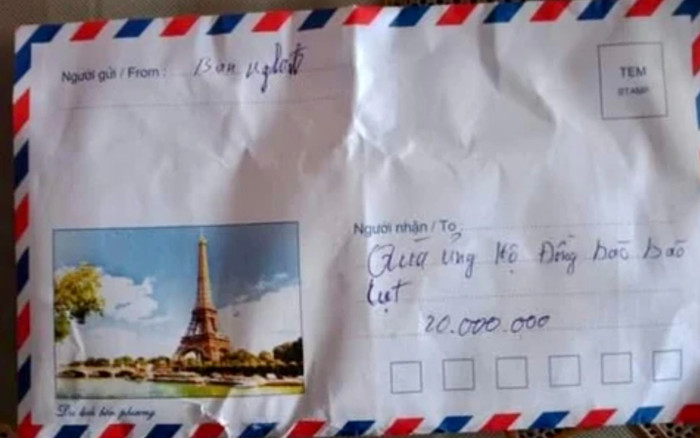 Người gửi / From :
TEM
STAMP
Người nhận / To :
Quà ủng hộ Đồng bào bão
lụt
20.000.000
Du lịch bốn phương